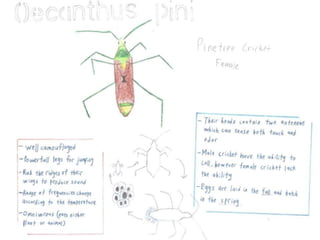 Oecanthus pini
Pinetree Cricket
Female
- Well camouflaged
- Powerful legs for jumping
- Rub the ridges of their
wings to produce sound
- Range of frequencies change
according to the temperature
- Omnivorous (goes either
plant or animal)
- Their heads contain two antennae
which can sense both touch and
odor
- Male cricket have the ability to
call, however female cricket lack
the ability
- Eggs are laid in the fall and hatch
in the spring